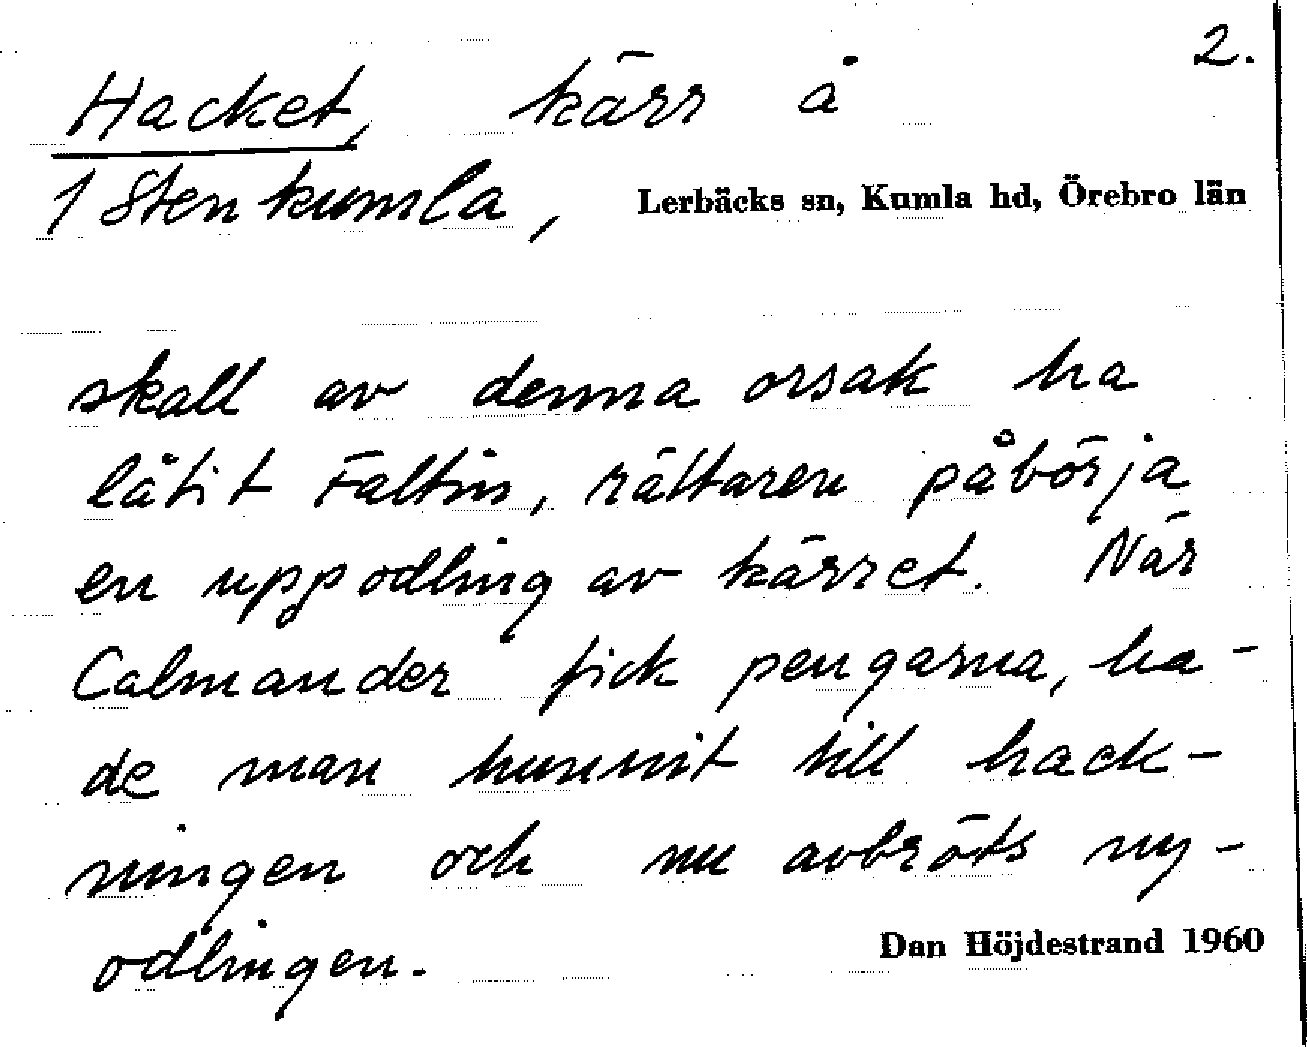 2.
Hacket, kärr å
1 Stenkumla, Lerbäcks sn, Kumla hd, Örebro län
skall av denna orsak ha
låtit Faltin, rättaren påbörja
en uppodling av kärret. När
Calmander fick pengarna, ha-
de man hunnit till hack-
ningen och nu avbröts ny-
odlingen.
Dan Höjdestrand 1960